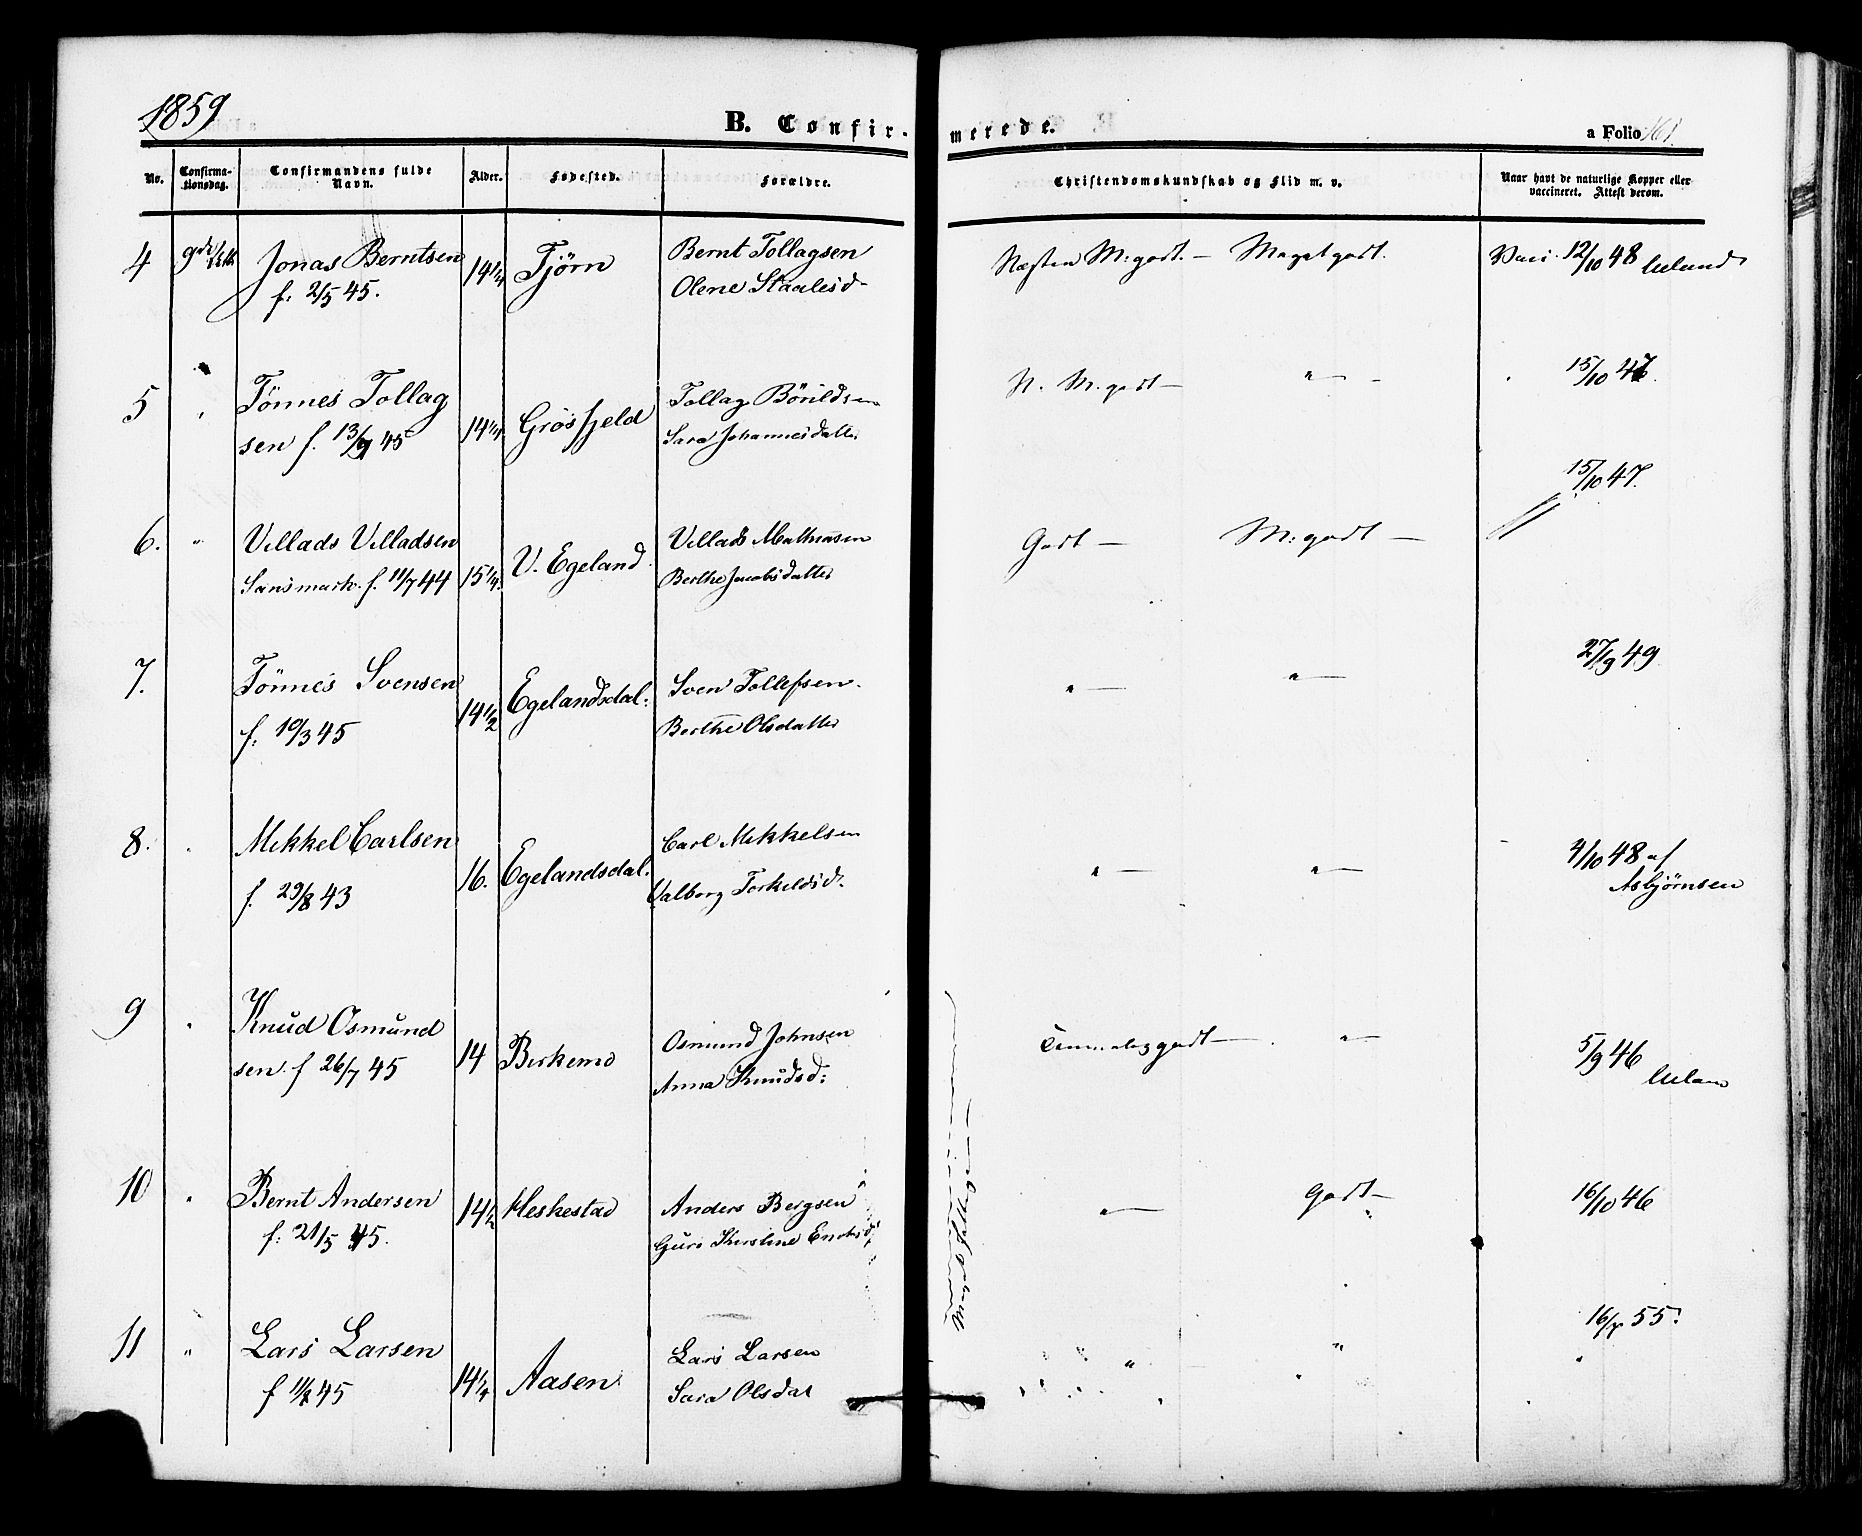 1859
B. Confir-
merede.
a Folio 161.
No.
Confirma-
tionsdag.
Confirmandens fulde
Navn.
Alder.
Fødested.
Forældre.
Christendomskundskab og Flid m. v.
Naar havt de naturlige Kopper eller
vaccineret. Attest derom.
4
Jonas Berntsen
f. 2/5 45.
14 1/4
Tjörn
Bernt Tollagsen
Olene Staalesd-
Næsten M. godt. - Meget godt.
Vacc. 12/10 48 Ueland
5
"
Tönnes Tollag
sen f. 13/9 45
14 1/4
Grösfjeld
Tollag Börildsen
Sara Johannesdatter
N. M. godt - " -
15/10 47.
6.
"
Villads Villadsen
Sansmark. f. 11/7 44
15 1/4.
V. Egeland.
Villads Mathiasen
Berthe Jacobsdatter
Godt - M. godt -
15/10 47.
7.
Tönnes Svensen
f. 10/3 45
14 1/2
Egelandsdal.
Sven Tollefsen.
Berthe Olsdatter
" - " -
27/9 49
8.
"
Mikkel Carlsen
f. 29/8 43
16.
Egelandsdal.
Carl Mikkelsen
Valborg Torkelsd.
" - " -
4/10 48 af
Asbjørnsen
9
"
Knud Osmund
sen. f 26/7 45
14
Birkemo
Osmund Johnsen
Anna Knudsd:
Temmelig godt - " -
5/9 46
Uelan
10
"
Bernt Andersen
f: 21/5 45.
14 1/2
Heskestad
Anders Bergsen
Guri Kirstine
" - Godt -
16/10 46
11
"
Lars Larsen
f 11/8 45
14 1/4
Aasen
Lars Larsen
Sara Olsdat
" "
16/7 55.